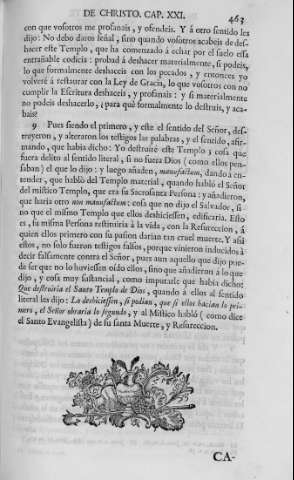 DE CHRISTO. CAP. XXI. 463
con que vosotros me profanais, y ofendeis. Y á otro sentido les
dijo: No debo daros señal, sino quando vosotros acabeis de des-
hacer este Templo, que ha comenzado á echar por el suelo essa
entrañable codicia: probad á deshacer materialmente, si podeis,
lo que formalmente deshaceis con los pecados, y entonces yo
volveré á restaurar con la Ley de Gracia, lo que vosotros con no
cumplir la Escritura deshaceis, y profanais: y si materialmente
no podeis deshacerlo, ¿para qué formalmente lo destruis, y aca-
bais?
9 Pues siendo el primero, y este el sentido del Señor, des-
treyeron, y alteraron los testigos las palabras, y el sentido, afir-
mando, que habia dicho: Yo destruiré este Templo; cosa que
fuera delito al sentido literal, si no fuera Dios (como ellos pen-
saban) el que lo dijo: y luego añaden, manufactum, dando á en-
tender, que habló del Templo material, quando habló el Señor
del mistico Templo, que era su Sacrosanta Persona: y añadieron,
que haria otro non manufactum: cosa que no dijo el Salvador, si-
no que el mismo Templo que ellos deshiciessen, edificaria. Esto
es, su misma Persona restituiria á la vida, con la Resureccion, á
quien ellos primero con su pasion darian tan cruel muerte. Y assi
estos, no solo fueron testigos falsos, porque vinieron inducidos á
decir falsamente contra el Señor, pues aun aquello que dijo pu-
do ser que no lo huviessen oído ellos, sino que añadieron á lo que
dijo, y cosa muy sustancial, como imputarle que habia dicho:
Que destruiria el Santo Templo de Dios, quando á ellos al sentido
literal les dijo: La deshiciessen, si podian, que si ellos hacian lo pri-
mero, el Señor obraria lo segundo, y al Mistico habló (como dice
el Santo Evangelista) de su santa Muerte, y Resureccion.
CA-